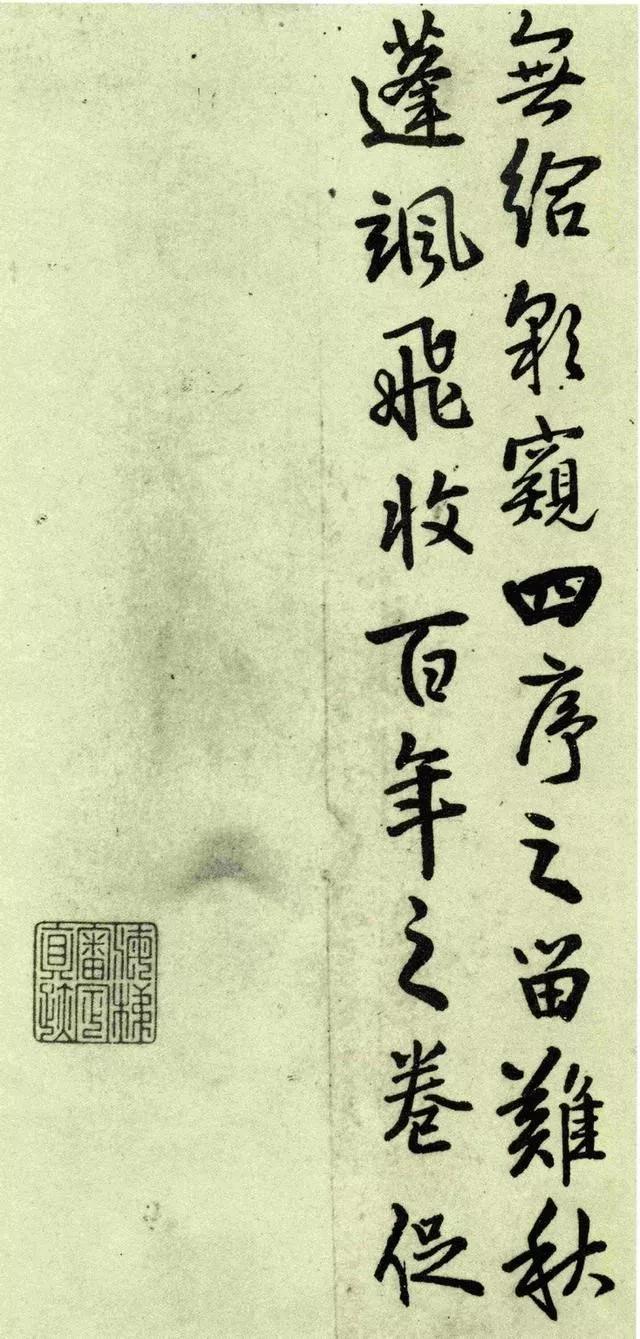 無給影窺四序之留難秋
蓬颯飛收百年之卷促
審定真跡